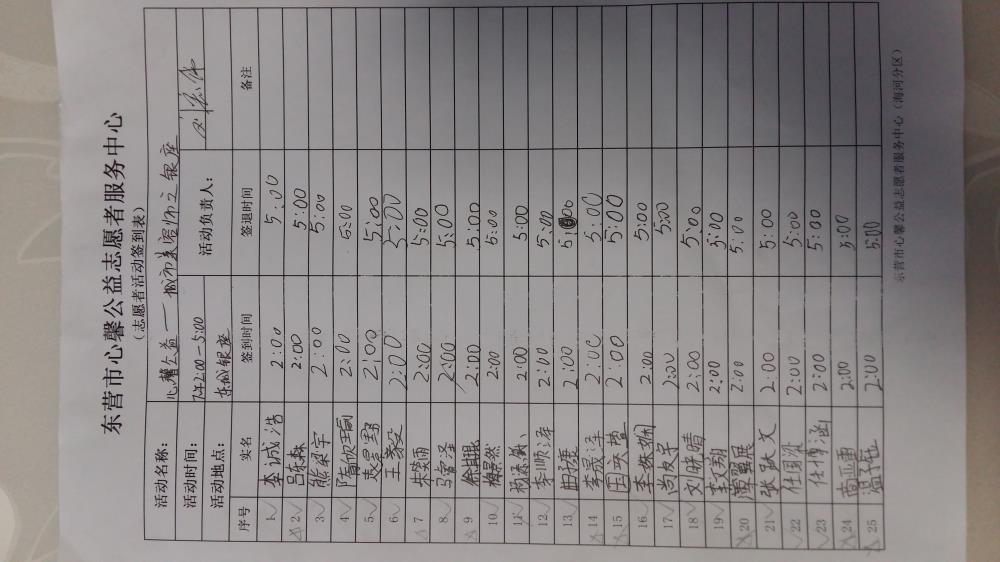 东营市心馨公益志愿者服务中心
（志愿者活动签到表）
活动名称： 心馨公益——城市美容师之银座
活动时间： 下午2:00—5:00 活动负责人：
活动地点： 东城银座
序号 实名 签到时间 签退时间 备注
1 李诚浩 2:00 5:00
2 吕东霖 2:00 5:00
3 熊梁宇 2:00 5:00
4 2:00 5:00
5 袁昊野 2:00 5:00
6 王家毅 2:00 5:00
7 朱荧雨 2:00 5:00
8 2:00 5:00
9 2:00 5:00
10 梅景然 2:00 5:00
11 2:00 5:00
12 李顺泽 2:00 5:00
13 2:00 5:00
14 李晟泽 2:00 5:00
15 2:00 5:00
16 李姝娴 2:00 5:00
17 尚友宇 2:00 5:00
18 文晓晴 2:00 5:00
19 2:00 5:00
20 2:00 5:00
21 张跃文 2:00 5:00
22 2:00 5:00
23 2:00 5:00
24 2:00 5:00
25 2:00 5:00
东营市心馨公益志愿者服务中心（海河分区）